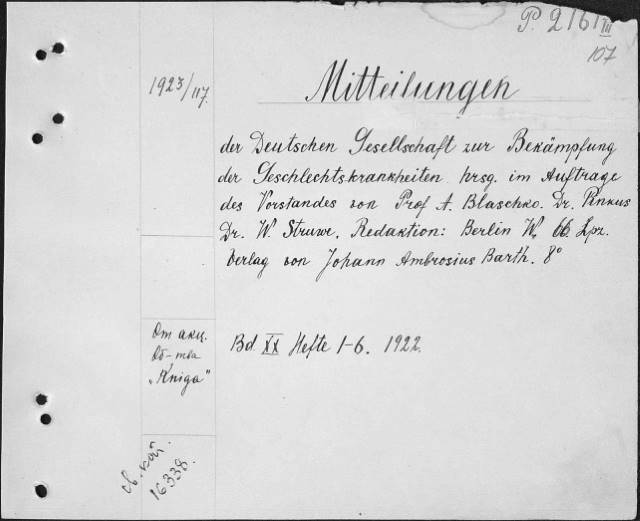 P. 216 III
107
1923/117.
Mitteilungen
der Deutschen Gesellschaft zur Bekämpfung
der Geschlechtskrankheiten hrsg. im Auftrage
des Vorstandes von Prof A. Blaschko. Dr. Pinkus
Dr. W. Struwe. Redaktion: Berlin W. 66. Lpz.
Verlag von Johann Ambrosius Barth. 8°
От акц.
Об-тва
„Kniga"
Bd XX Hefte 1-6. 1922.
16338.